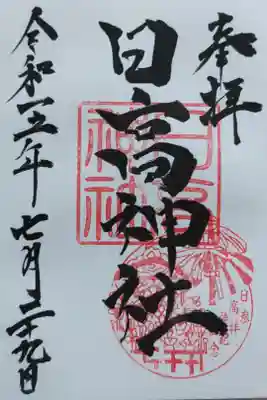 奉拝
日高神社
令和五年七月二十九日